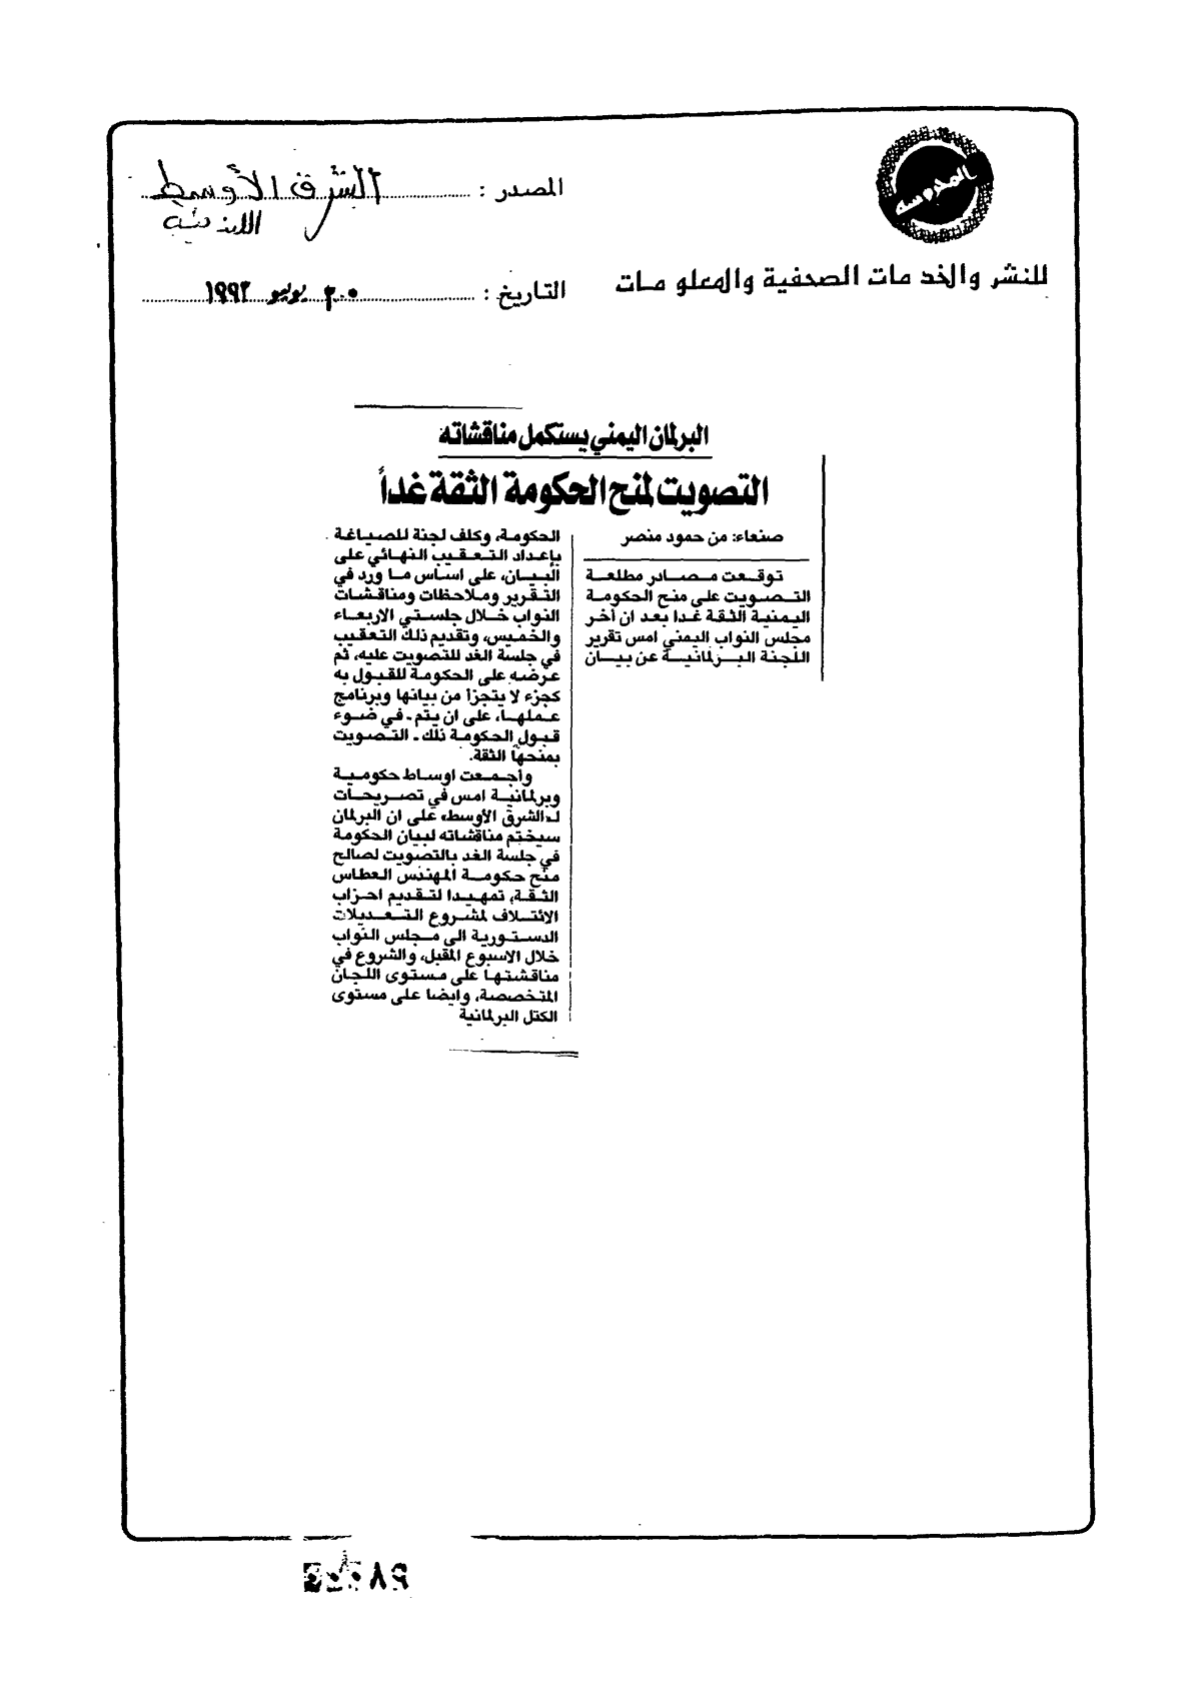 المدوسه
للنشر والخدمات الصحفية والمعلومات
المصدر : الشرق الأوسط
اللندنية
التاريخ : ٣٠ يونيو ١٩٩٣
البرلمان اليمني يستكمل مناقشاته
التصويت لمنح الحكومة الثقة غداً
صنعاء: من حمود منصر
توقعت مصادر مطلعة
التصويت على منح الحكومة
اليمنية الثقة غدا بعد ان أخر
مجلس النواب اليمني امس تقرير
اللجنة البرلمانية عن بيان
الحكومة، وكلف لجنة للصياغة
بإعداد التعقيب النهائي على
البيان، على اساس ما ورد في
التقرير وملاحظات ومناقشات
النواب خلال جلستي الاربعاء
والخميس، وتقديم ذلك التعقيب
في جلسة الغد للتصويت عليه، ثم
عرضه على الحكومة للقبول به
كجزء لا يتجزأ من بيانها وبرنامج
عملها، على ان يتم ـ في ضوء
قبول الحكومة ذلك ـ التصويت
بمنحها الثقة.
وأجمعت اوساط حكومية
وبرلمانية امس في تصريحات
لـ«الشرق الأوسط» على ان البرلمان
سيختم مناقشاته لبيان الحكومة
في جلسة الغد بالتصويت لصالح
منح حكومة المهندس العطاس
الثقة، تمهيدا لتقديم احزاب
الائتلاف لمشروع التعديلات
الدستورية الى مجلس النواب
خلال الاسبوع المقبل، والشروع في
مناقشتها على مستوى اللجان
المتخصصة، وايضا على مستوى
الكتل البرلمانية